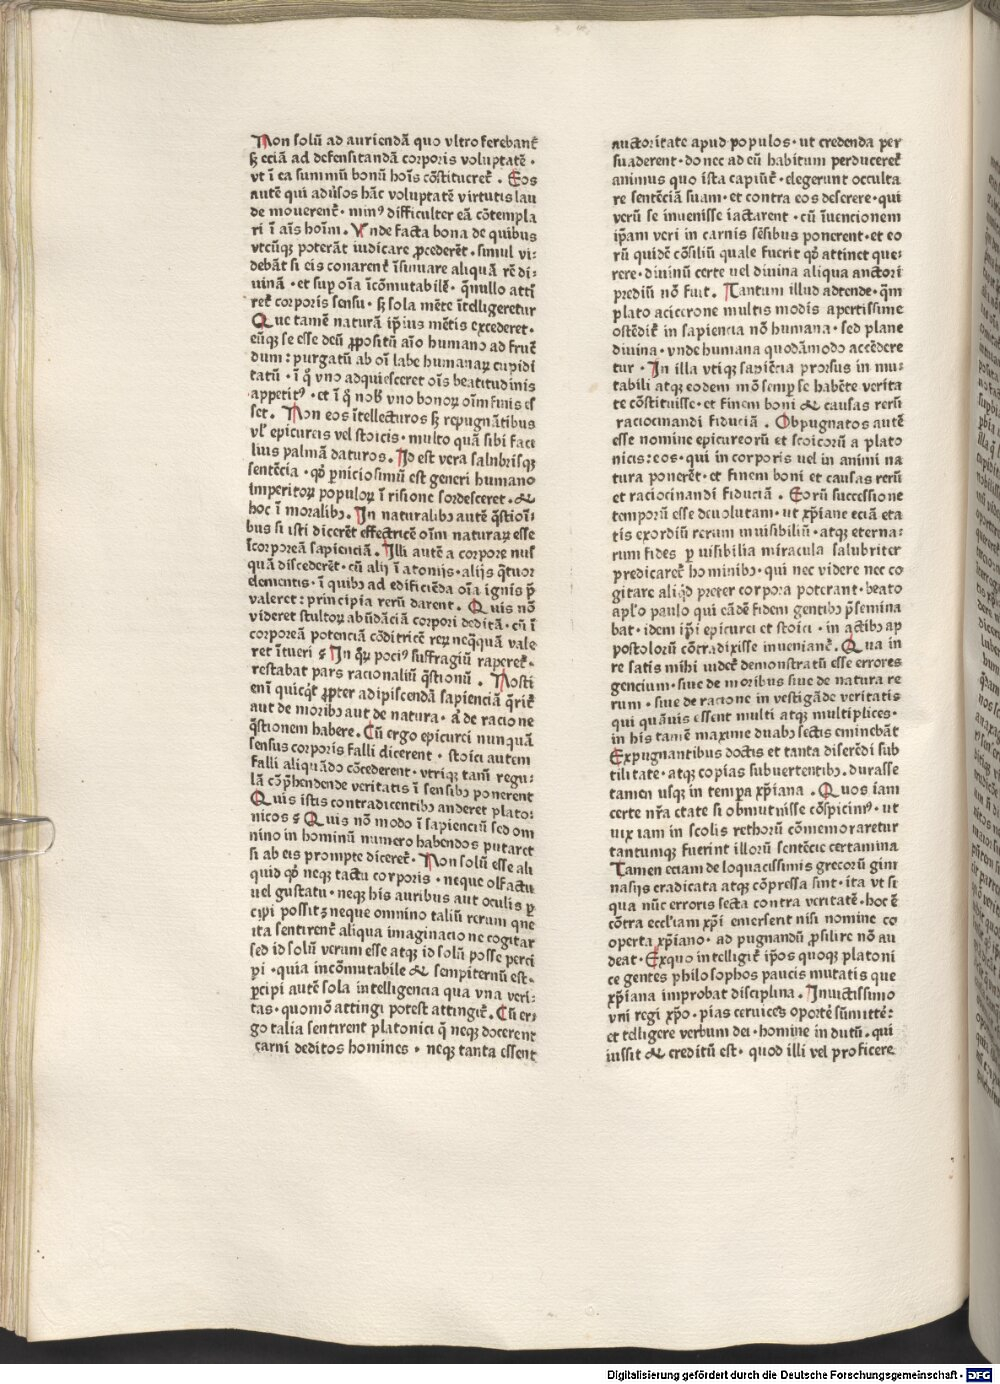 Non solū ad auriendā quo vltro ferebant᷒
sꝫ eciā ad defensitandā corporis voluptatē ·
vt ī ea summū bonū hoīs cōstituerēt᷒ . Eos
autē qui adūsos hāc voluptatē virtutis lau
de mouerent᷒ · minꝰ difficulter eā cōtempla
ri ī aīs hoīm . Vnde facta bona de quibus
vtcūqꝫ poterāt iudicare ꝓcederēt · simul vi⸗
debāt si eis conarent᷒ īsinuare aliquā rē di⸗
uinā · et suꝑ oīa īcōmutabilē · q̄ nullo attī
ret᷒ corporis sensu · sꝫ sola mēte ītelligeretur
Que tamē naturā ip̄ius mētis excederet ·
eūqꝫ se esse deū ꝓpositū aīo humano ad fruē
dum : purgatū ab oī labe humanaꝝ cupidi
tatū · ī q̄ vno adquiesceret oīs beatitudinis
appetitꝰ · et ī q̄ nob̄ vno bonoꝝ oīm finis es
set . Non eos ītellecturos sꝫ repugnātibus
vl̓ epicureis vel stoicis · multo quā sibi faci
lius palmā daturos . Id est vera salubrisqꝫ
sentēcia · qđ ꝑniciosimū est generi humano
imperitoꝝ populoꝝ ī risione sordesceret · &
hoc ī moralibꝰ . In naturalibꝰ autē q̄stioī⸗
bus si isti dicerēt effectricē oīm naturaꝝ esse
īcorporeā sapienciā . Illi autē a corpore nus
quā discederēt · cū alij ī atomijs · alijs q̄tuor
elementis · ī quibꝰ ad edificiēda oīa ignis p̄
valeret : principia rerū darent . Quis nō
videret stultoꝝ abūdāciā corpori deditā · cū ī
corporeā potenciā cōditricē reꝝ neq̄quā vale
ret ītueri ? In q̄ꝝ pociꝰ suffragiū raperet᷒ ·
restabat pars racionaliū q̄stionū . Nosti
enī quicq̇t ꝓpter adipiscendā sapienciā q̄rit᷒
aut de moribꝰ aut de natura · aʼ de racione
q̄stionem habere . Cū ergo epicurei nunquā
sensus corporis falli dicerent · stoici autem
falli aliquādo cōcederent · vtriqꝫ tam̄ regu⸗
lā cōp̄hendende veritatis ī sensibꝰ ponerent
Quis istis contradicentibꝰ anderet plato⸗
nicos ? Quis nō modo ī sapienciū sed om
nino in hominū numero habendos putaret
si ab eis prompte diceret᷒ · Non solū esse ali
quid qđ neqꝫ tactu corporis · neque olfactu
uel gustatu · neqꝫ his auribus aut oculis ꝑ
cipi possitꝫ neque omnino taliū rerum que
ita sentirent᷒ aliqua imaginacione cogitar
sed id solū verum esse atqꝫ id solū posse perci
ꝑi · quia incōmutabile & sempiternū est ·
ꝑcipi autē sola intelligencia qua vna veri⸗
tas · quomō attingi potest attingit᷒ . Cū er⸗
go talia sentirent platonici q̄ neqꝫ docerent
carni deditos homines · neqꝫ tanta essent
auctoritate apud populos · ut credenda per
suaderent · donec ad eū habitum perduceret᷒
animus quo ista capiūt᷒ · elegerunt occulta
re sentēciā suam · et contra eos deserere · qui
verū se inuenisse iactarent · cū īuencionem
ip̄am veri in carnis sēsibus ponerent · et eo
rū quidē cōsiliū quale fuerit qđ attinet que⸗
rere · diuinū certe uel diuina aliqua auctori
prediū nō fuit . Tantum illud adtende · qm̄
plato a cicerone multis modis apertissime
ostēdit᷒ in sapiencia nō humana · sed plane
diuina · vnde humana quodāmodo accēdere
tur · In illa vtiqꝫ sapiēcia prorsus in mu⸗
tabili atqꝫ eodem mō semꝑ se habēte verita
te cōstituisse · et finem boni & causas rerū
raciocinandi fiduciā . Obpugnatos autē
esse nomine epicureorū et stoicorū a plato
nicis : eos · qui in corporis uel in animi na
tura ponerēt · et finem boni et causas rerū
et raciocinandi fiduciā . Eorū successione
temporū esse deuolutam · ut xp̄iane eciā eta
tis exordiū rerum inuisibiliū · atqꝫ eterna⸗
rum fides ꝑ uisibilia miracula salubriter
predicaret᷒ hominibꝰ · qui nec videre nec co
gitare aliq̇d preter corpora poterant · beato
apl̓o paulo qui eādē fidem gentibꝰ p̄semina
bat · idem ip̄i epicurei et stoici · in actibꝰ ap
postolorū cōtradixisse inueniant᷒ . Qua in
re satis mihi uidet᷒ demonstratū esse errores
gencium · siue de moribus siue de natura re
rum · siue de racione in vestigāde veritatis
qui quāuis essent multi atqꝫ multiplices ·
in his tamē maxime duabꝰ sectis eminebāt
Expugnantibus doctis et tanta diserēdi sub
tilitate · atqꝫ copias subuertentibꝰ . durasse
tamen usqꝫ in tempora xp̄iana . Quos iam
certe nr̄a etate si obmutuisse cōspicimꝰ · ut
uix iam in scolis rethorū cōmemoraretur
tantumqꝫ fuerint illorū sentēcie certamina
Tamen eciam de loquacissimis grecorū gim
nasijs eradicata atqꝫ cōpressa sint · ita vt si
qua nūc erroris secta contra veritatē · hoc ē
cōtra eccl̓iam xp̄i emerserit nisi nomine co
operta xp̄iano · ad pugnandū ꝓsilire nō au
deat · Exquo intelligit᷒ ip̄os quoqꝫ platoni
ce gentes philosophos paucis mutatis que
xp̄iana improbat disciplina . Inuictissimo
vni regi xp̄o · pias ceruices oportē sūmitte⸗
et telligere verbum dei · homine indutū . qui
iussit & creditū est · quod illi vel proficere
Digitalisierung gefördert durch die Deutsche Forschungsgemeinschaft - DFG